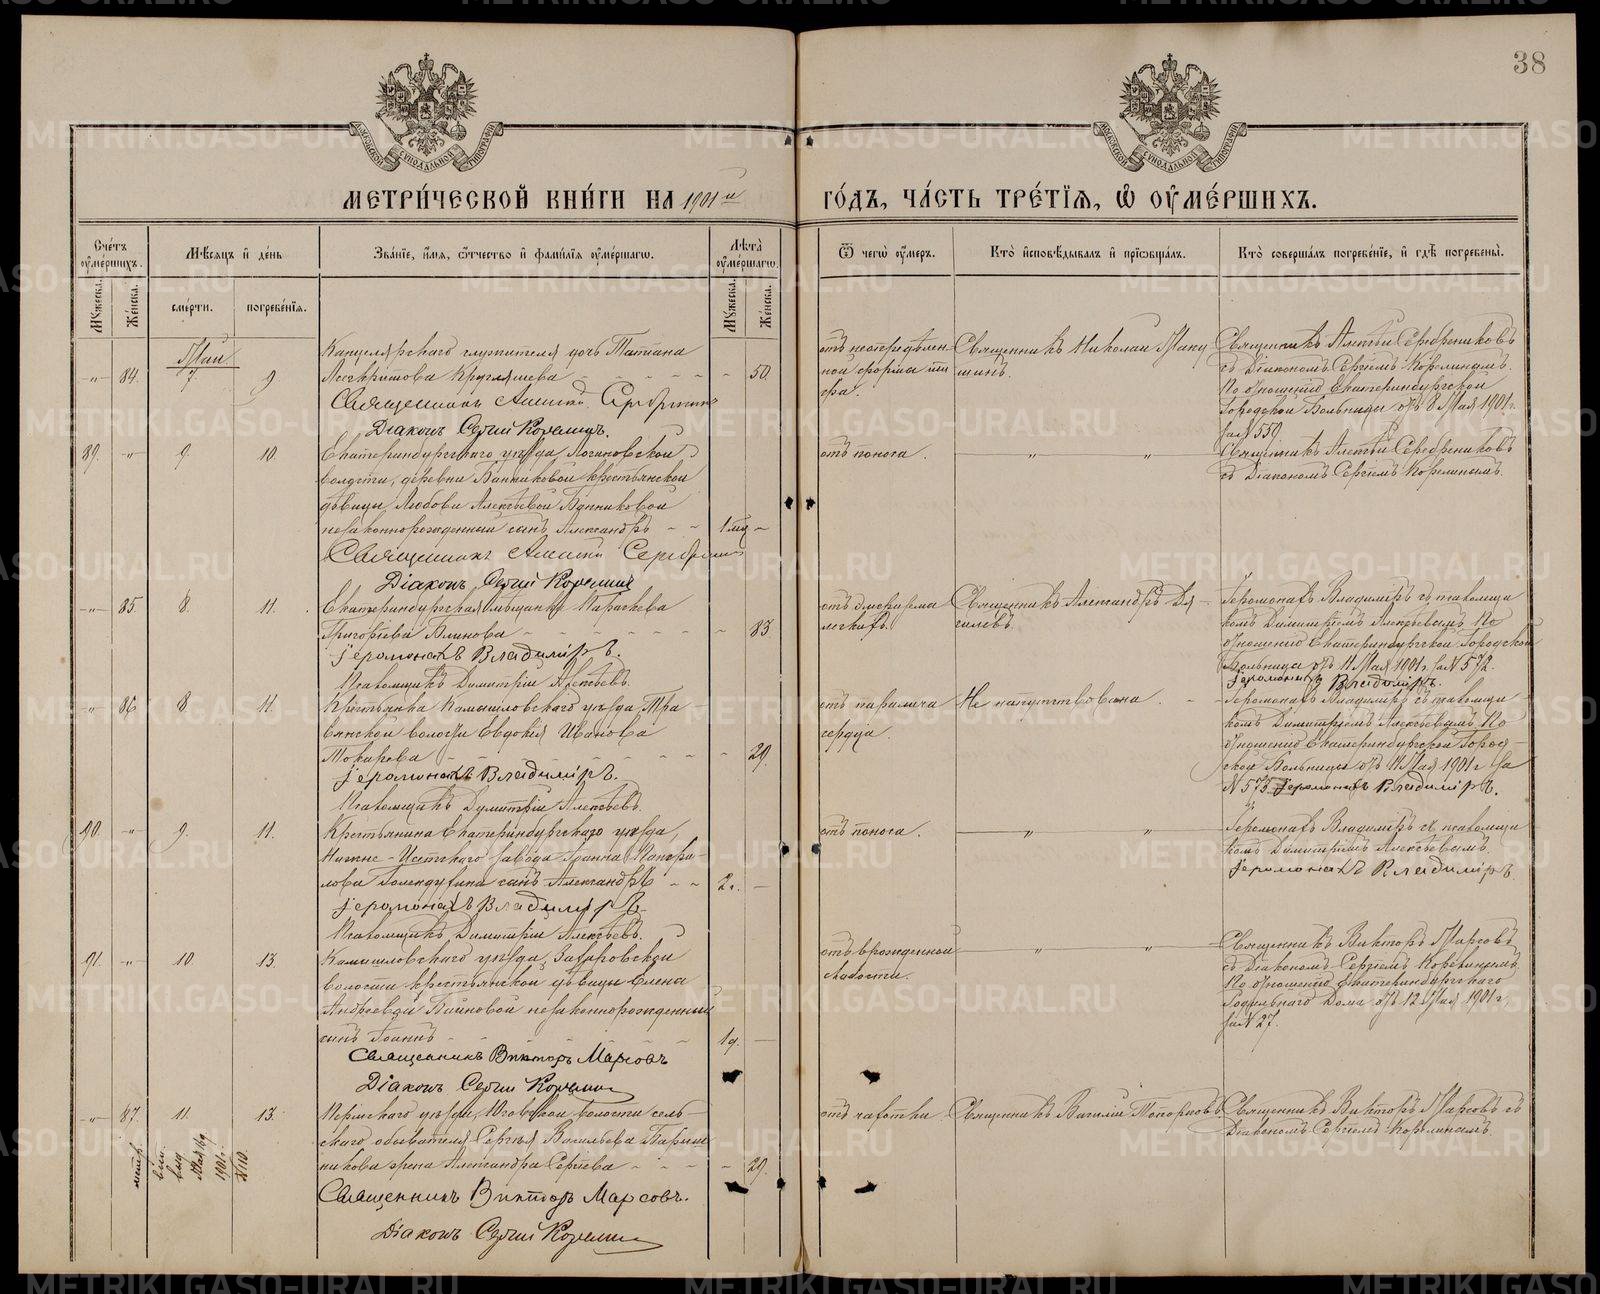 38
МЕТРИ́ЧЕСКОЙ КНИ́ГИ НА 1901 й
ГО́ДЪ, ЧА́СТЬ ТРЕ́ТЇѦ, Ѡ҆ ОУ҆МЕ́РШИХЪ.
Сче́тъ оу҆ме́ршихъ.
Мѣ́сѧцъ и҆ де́нь
Зва́нїе, и҆́мѧ, ѻ҆́тчество и҆ фами́лїѧ оу҆ме́ршагѡ.
Лѣ́та оу҆ме́ршагѡ.
Ѿ чегѡ̀ оу҆́меръ.
Кто̀ и҆сповѣ́дывалъ и҆ прїѡбща́лъ.
Кто̀ соверша́лъ погребе́нїе, и҆ гдѣ̀ погребены̀.
Мꙋ́жеска.
Же́нска.
сме́рти.
погребе́нїѧ.
Мꙋ́жеска.
Же́нска.
Май
-„- 84. 7 9
Канцелярскаго служителя дочь Татіана
Круглящева - - - - 50.
Священникъ Алексій Серебренниковъ
Діаконъ Сергій Корелинъ.
отъ неопредѣлен-
ной формы ти-
фа.
Священникъ Николай
Священникъ Алексѣй Серебрениковъ
съ Діакономъ Сергіемъ Корелинымъ.
По отношенію Екатеринбургской
Городской Больницы отъ 8 Мая 1901 г.
за № 550
89. -„- 9. 10.
Екатеринбургскаго уѣзда, Логиновской
волости, деревни Банниковой крестьянской
дѣвицы Любови Алексѣевой Банниковой
незаконнорожденный сынъ Александръ - - 1 мц -
Священникъ Алексій Серебренниковъ
Діаконъ Сергій Корелинъ
отъ поноса. „ „
Священникъ Алексѣй Серебрениковъ
съ Діакономъ Сергіемъ Корелинымъ.
-„- 85. 8. 11.
Екатеринбургская мѣщанка Параскева
Григорьева Блинова - - - - 83.
Іеромонахъ Владиміръ.
Псаломщикъ Димитрій Алексѣевъ.
отъ эмфизема
легкихъ.
Священникъ Александръ Дя-
гилевъ.
Іеромонахъ Владиміръ съ псаломщи
комъ Димитріемъ Алексѣевымъ. По
отношенію Екатеринбургской Городской
Больницы отъ 11 Мая 1901 г. за № 572.
Іеромонахъ Владиміръ.
-„- 86. 8 11.
Крестьянка Камышловскаго уѣзда Тра-
вянской волости Евдокія Иванова
Токарева - - - - 29.
Іеромонахъ Владиміръ.
Псаломщикъ Димитрій Алексѣевъ.
отъ паралича
сердца.
Не напутствована.
Іеромонахъ Владиміръ съ псаломщи
комъ Димитріемъ Алексѣевымъ. По
отношенію Екатеринбургской Город-
ской Больницы отъ 11 Мая 1901 г. за
№ 573 Іеромонахъ Владиміръ.
90. -„- 9. 11.
Крестьянина Екатеринбургскаго уѣзда,
Нижне-Исетскаго завода Іоанна
Голендухина сынъ Александръ - - 2 г. -
Іеромонахъ Владиміръ
Псаломщикъ Димитрій Алексѣевъ.
отъ поноса. „ „
Іеромонахъ Владиміръ съ псаломщи
комъ Димитріемъ Алексѣевымъ.
Іеромонахъ Владиміръ.
91. -„- 10 13.
Камышловскаго уѣзда, Захаровской
волости крестьянской дѣвицы Елена
Андреевой незаконнорожденный
сынъ Іоаннъ - - - 1 д. -
Священникъ Викторъ Марсовъ
Діаконъ Сергій Корелинъ
отъ врожденной
слабости. „ „
Священникъ Викторъ Марсовъ
съ Діакономъ Сергіемъ Корелинымъ.
По отношенію Екатеринбургскаго
Родильнаго Дома отъ 12 Мая 1901 г.
за № 27.
-„- 87. 11. 13.
Пермскаго уѣзда, Юговской волости сель-
скаго обывателя Сергѣя Васильева
жена Александра Сергѣева - - - 29.
Священникъ Викторъ Марсовъ.
Діаконъ Сергій Корелинъ
отъ чахотки.
Священникъ Василій Топорковъ
Священникъ Викторъ Марсовъ съ
Діакономъ Сергіемъ Корелинымъ.
1901 г.
METRIKI.GASO-URAL.RU